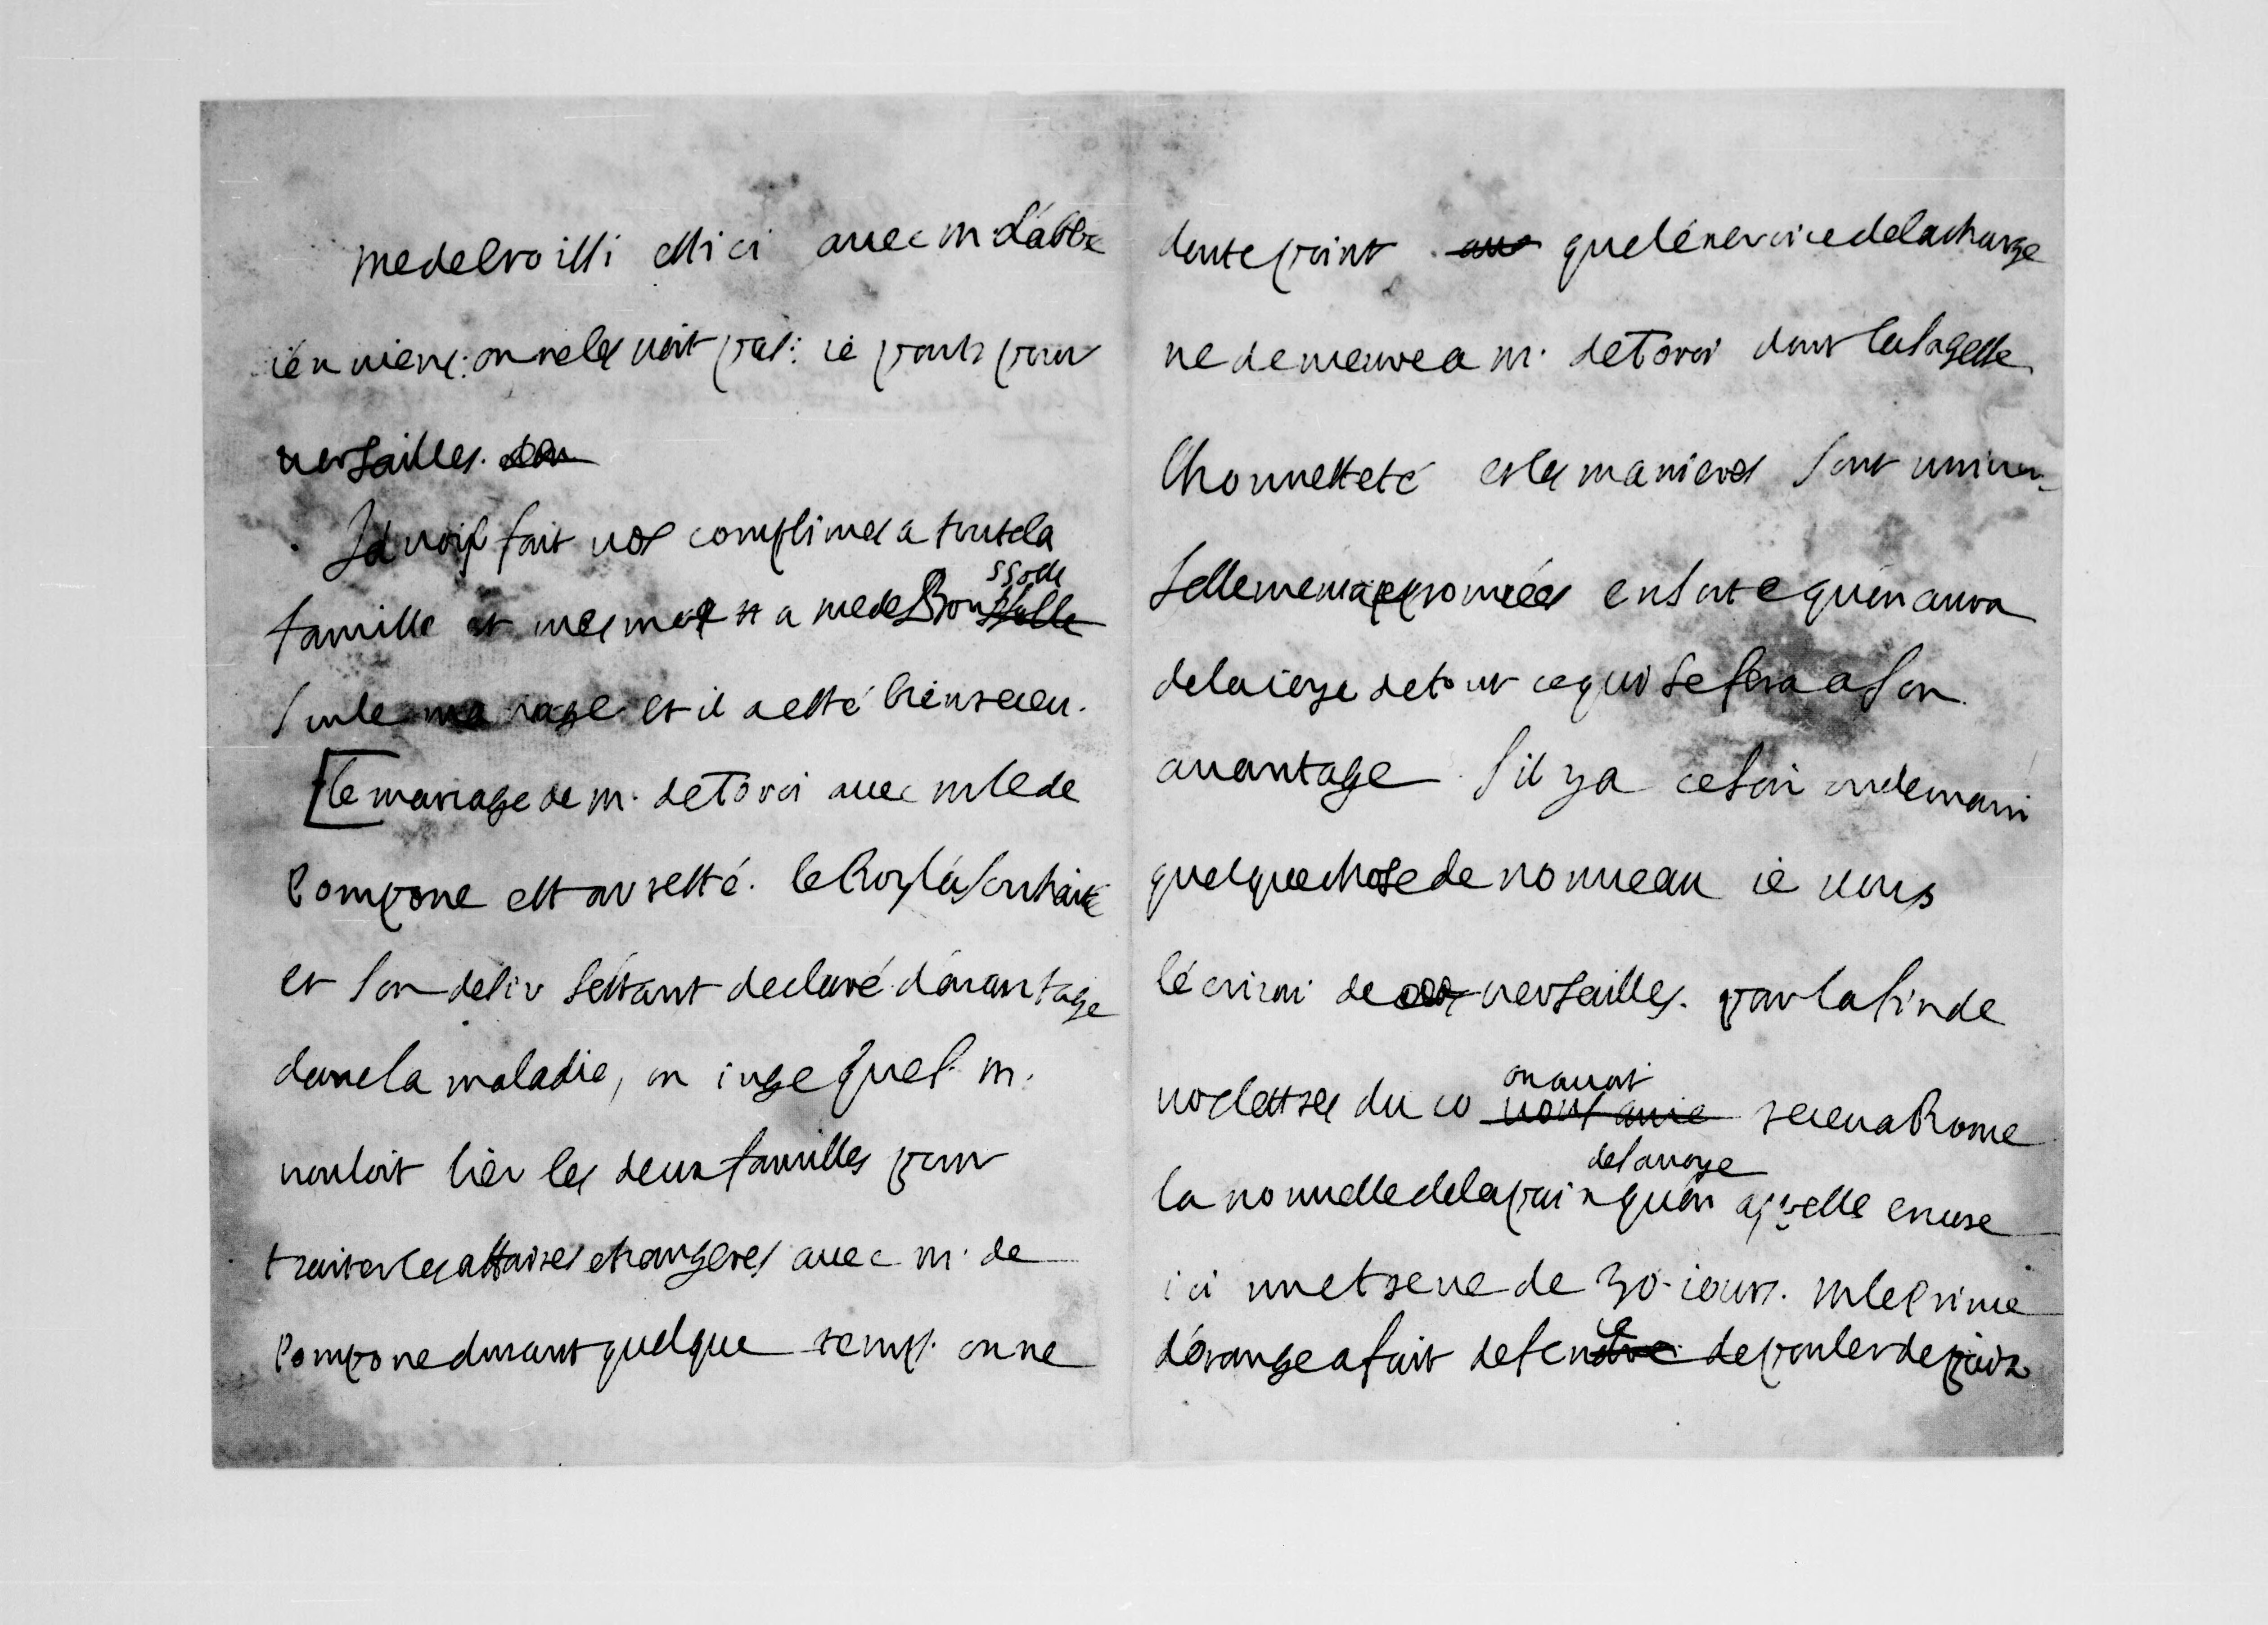 Me de Croilli est ici avec m. l'abbé
i'en viens: on ne les voit pas: ie parts pour
versailles.
J'ai fait vos complimens a toute la
famille et mesme a me de Bourssolle
sur le mariage et il a esté bien receu.
[le mariage de m. de Torci avec mlle de
Pompone est arresté. le Roy l'a souhaité
et son desir s'estant declaré d'avantage
dans la maladie, on iuge que S. M.
vouloit lier les deux familles pour
traiter les affaires etrangeres avec m. de
Pompone durant quelque temps. on ne
doute point que l'exercice de la charge
ne demeure a m. de Torci dont la sagesse
l'honnesteté et les manieres sont univer-
sellement approuvées en sorte qu'on aura
de la ioye de tout ce qui se fera a son
avantage. s'il y a ce soir ou demain
quelque chose de nouveau ie vous
l'ecrirai de versailles. par la fin de
vos lettres du 10 on avoit receu a Rome
la nouvelle de la paix de savoye qu'on appelle encore
ici une treve de 30. iours. m. le Prince
d'orange a fait defence de parler de paix